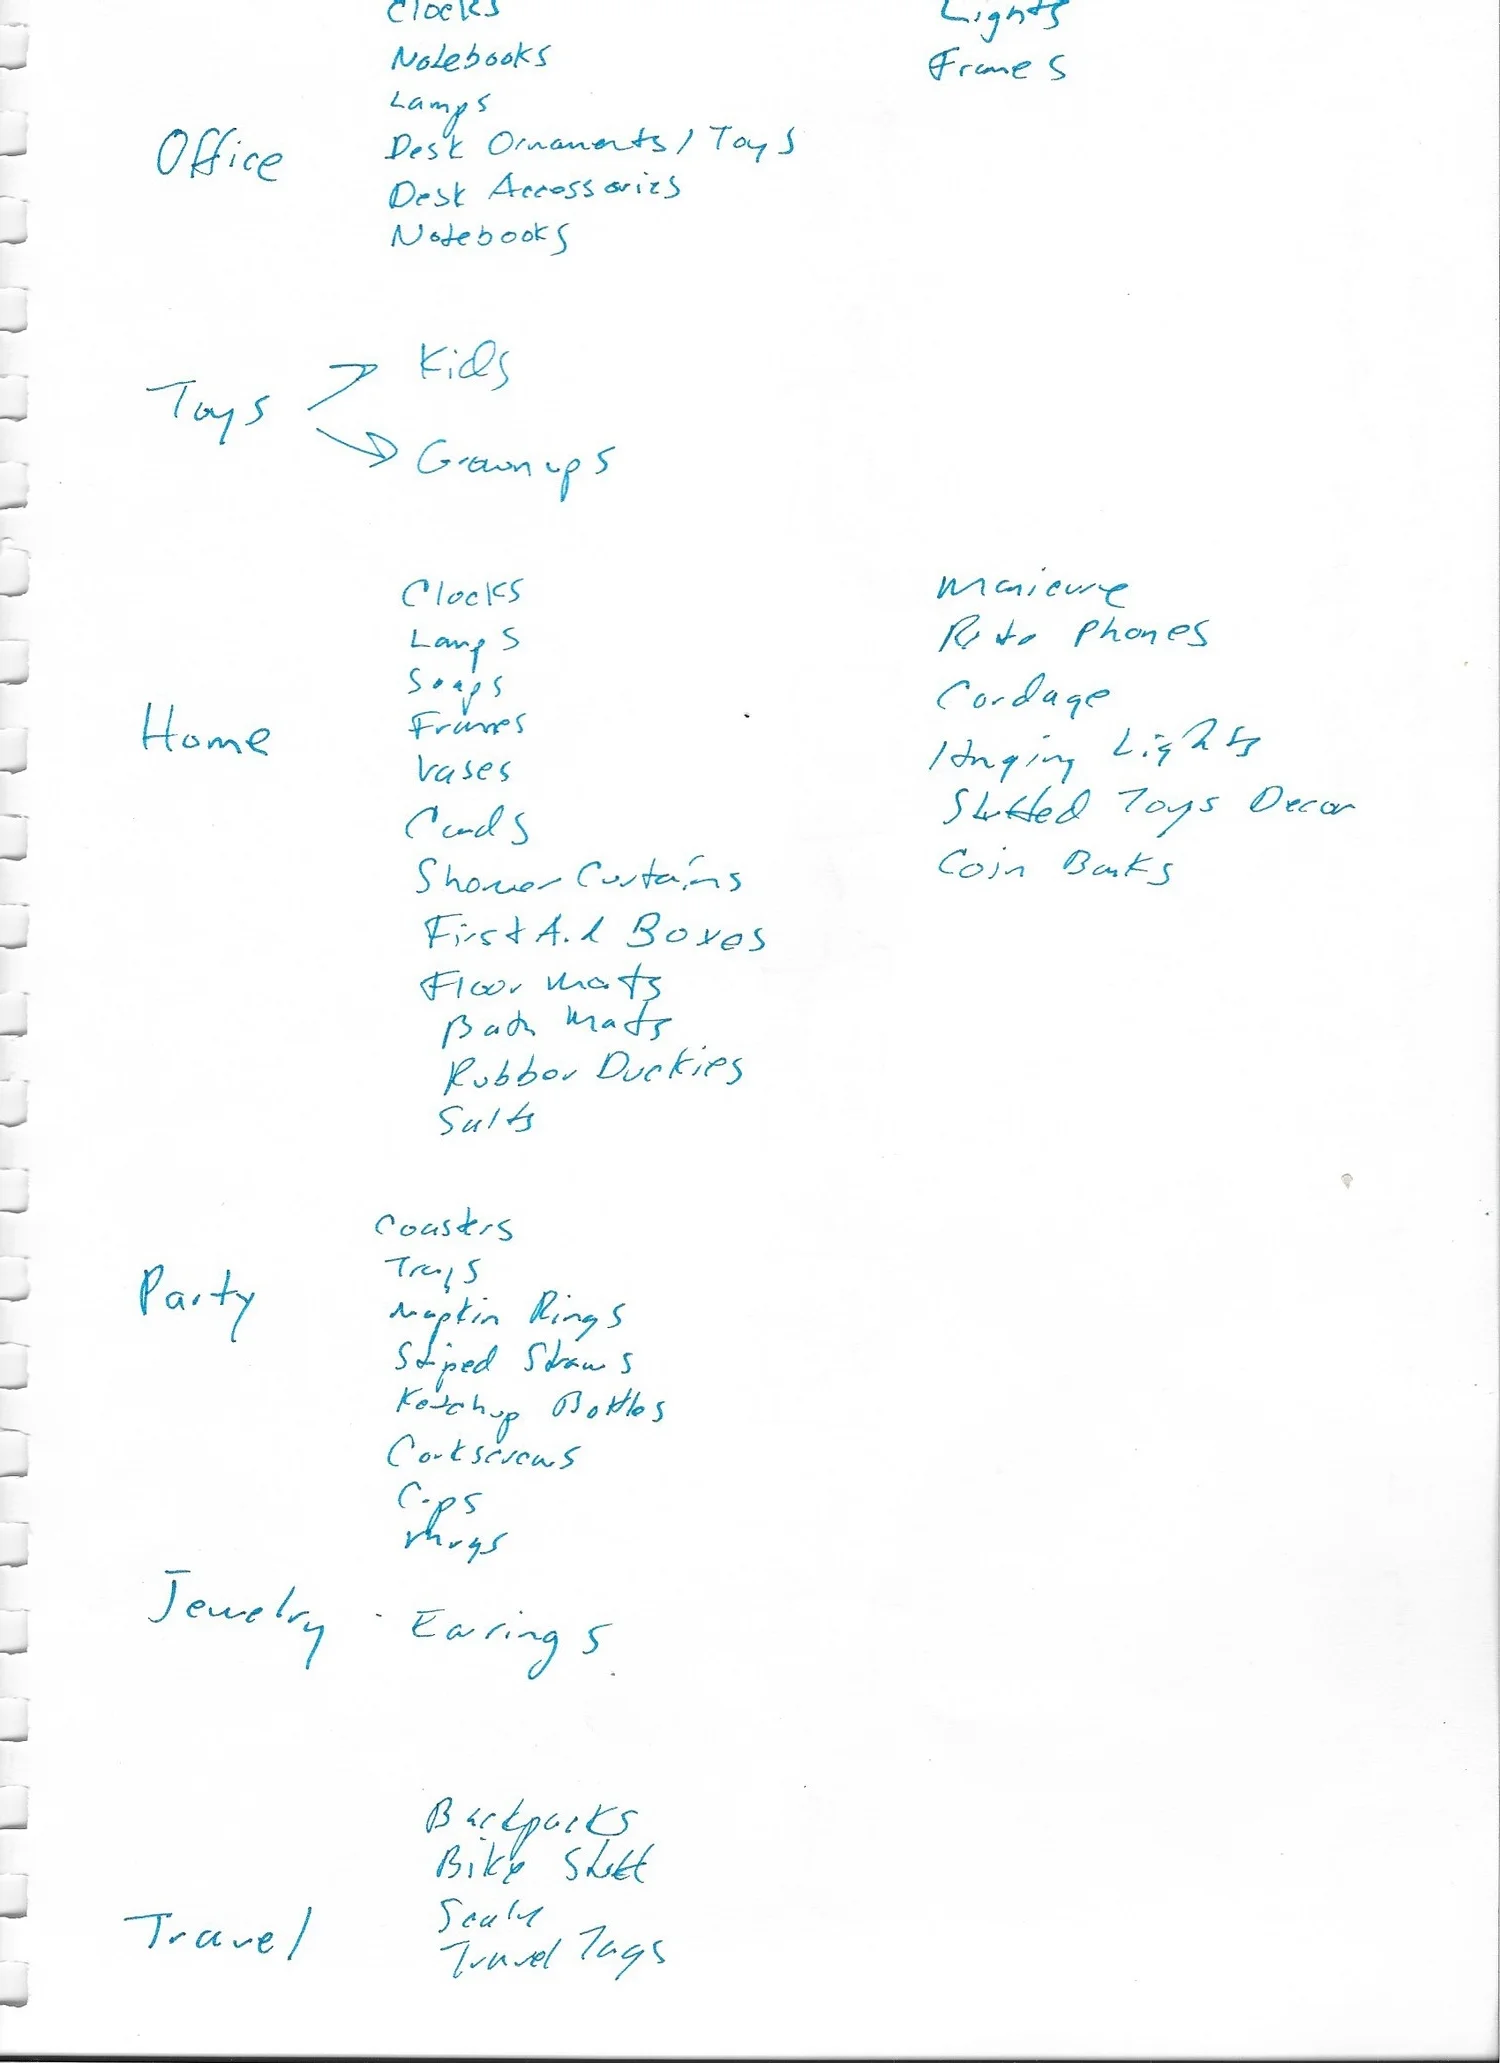 Clocks
Lights
Notebooks
Frames
Lamps
Office
Desk Ornaments/Toys
Desk Accessories
Notebooks
Kids
Toys
Grownups
Clocks
Lamps
Soaps
Frames
Home
Vases
Cards
Shower Curtains
First Aid Boxes
Floor Mats
Bath Mats
Rubber Duckies
Salts
Manicure
Phones
Cordage
Hanging Lights
Stuffed Toys Decor
Coin Banks
Coasters
Trays
Party
Napkin Rings
Striped Straws
Ketchup Bottles
Corkscrews
Cups
Mugs
Jewelry
Earings
Backpacks
Bike Stuff
Scale
Travel
Travel Tags